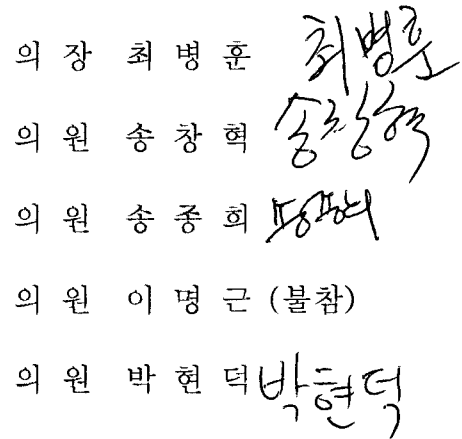 의 장 최 병 훈 최병훈
의 원 송 창 혁 송창혁
의 원 송 종 희
의 원 이 명 근 (불참)
의 원 박 현 덕 박현덕